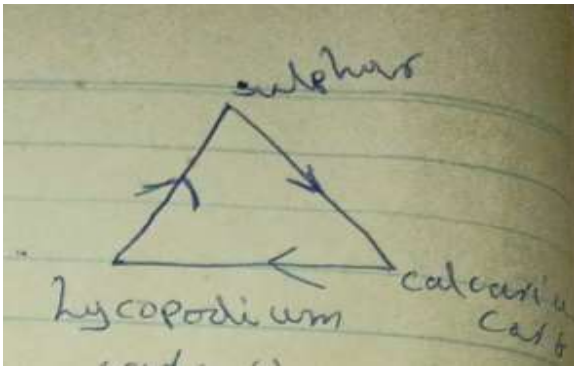 sulphur
calcaria
carb
Lycopodium